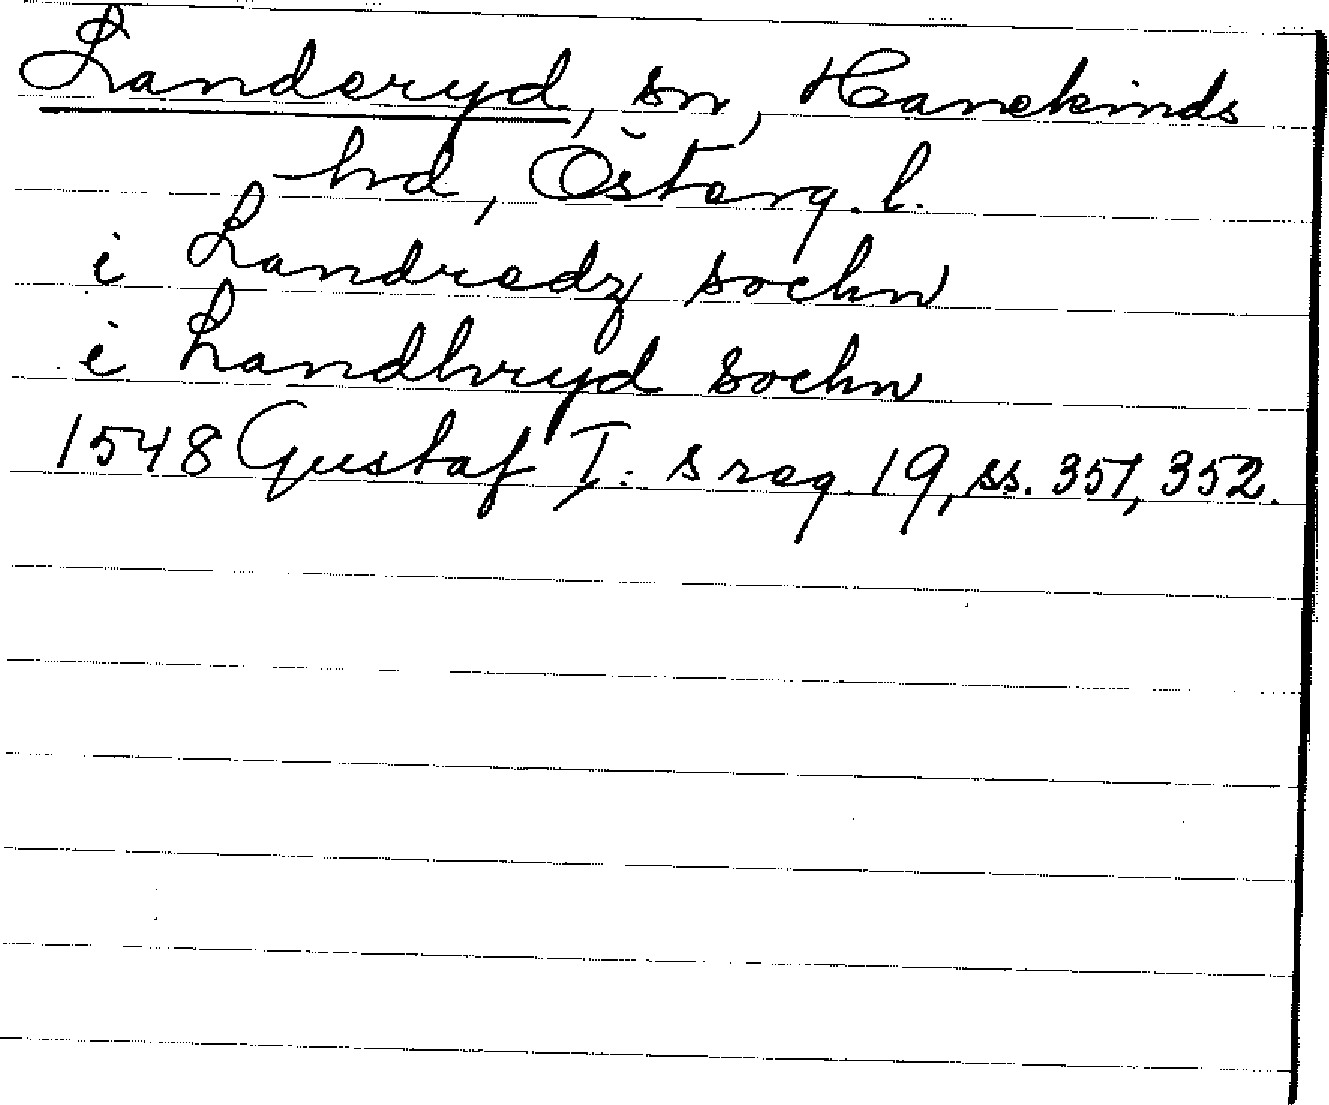 Landeryd, sn, Hanekinds
hd, Österg. l.
i Landredz sochn
i Landhryd sochn
1548 Gustaf I: s reg. 19, ss. 351, 352.